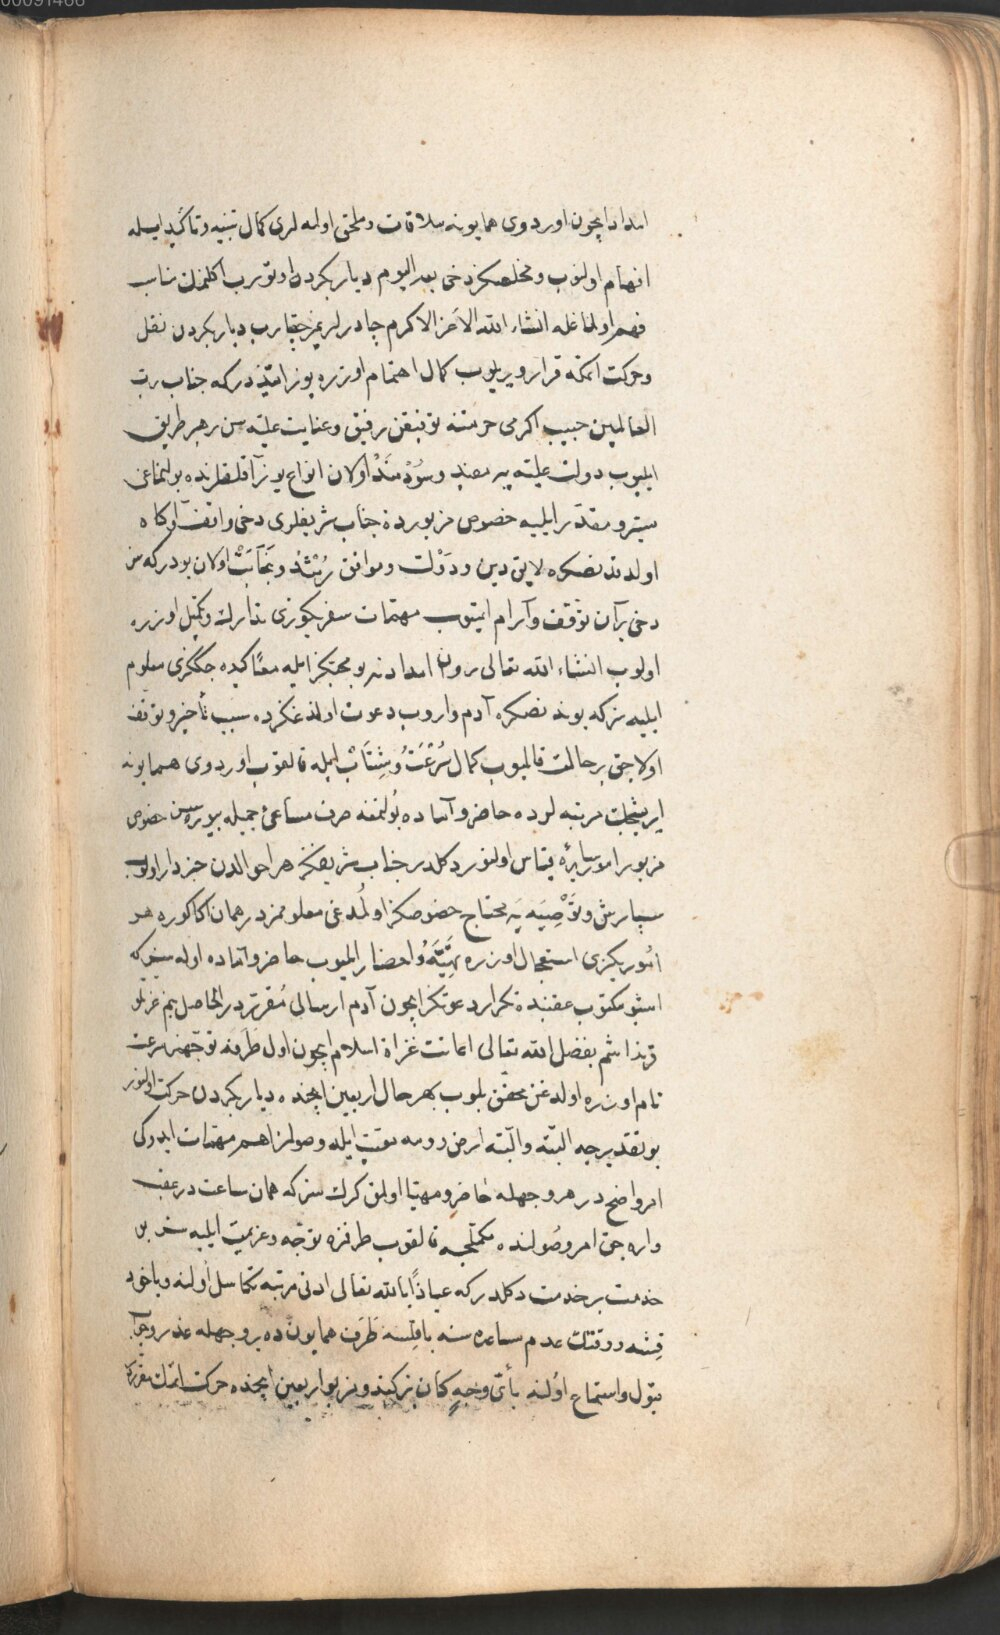 00091466
امداد ایچون اوردوی همایونه ملاقات و ملحق اولملری کمال تنبیه و تأکید ایله
انهام اولنوب و مخلصکز دخی بعد الیوم دیاربکردن اوتورب اکلنمك مناسب
فهم اولنماغله انشاء الله الاعز الاکرم چادرلریمز چقارب دیاربکردن نقل
و حرکت اتمکه قرار ویریلوب کمال اهتمام اوزره یوز اتیز درکه جناب رب
العالمین حبیب اکرمی حرمتنه توفیقن رفیق و عنایت علیه سن رهبر طریق
ایلیوب دولت علیه یه مفید و سودمند اولان انواع یوز آقلقلرنده بولنماغی
میسر و مقدر ایلیه خصوص مزبورده جناب شریفلری دخی واقف و آکاه
اولدقدنصکره لایق دین و دولت و موافق رشد و نجابت اولان بودرکه سز
دخی برآن توقف و آرام ایتمیوب مهمات سفریکوزی تدارك و تکمیل اوزره
اولوب انشاء الله تعالی روان امدادنه بو محبکز ایله معًا کیده جککزی معلوم
ایلیه سز که بوندنصکره آدم واروب دعوت اولندغکزده سبب تأخیر و توقف
اولاجق بر حالت قالمیوب کمال سرعت و شتاب ایله قالقوب اوردوی همایونه
ایریشجك مرتبه لرده حاضر و آماده بولنمغه صرف مساعئ جمیله بیوره سین خصوص
مزبور امور سایره یه قیاس اولنور دکلدر جناب شریفکز هر احوالدن خبردار اولوب
سپارش و توصیه یه محتاج خصوصکز اولمدغی معلوممزدر همان اکا کوره هر
امورکزی استعجال اوزره تهیه و احضار ایلیوب حاضر و آماده اوله سز که
اشبو مکتوب عقبنده تکرار دعوتکز ایچون آدم ارسالی مقرردر الحاصل بنم عزتلو
قرنداشم بفضل الله تعالی اعانت غزاة اسلام ایچون اول طرفه توجهمز سرعت
تام اوزره اولدغن محقق بلوب بهرحال اربعین ایچنده دیاربکردن حرکت اولنور
بو تقدیرجه البته و البته ارض رومه معیت ایله وصولمز اهم مهمات ایدوکی
امر واضحدر هر وجهله حاضر و مهیا اولمق کرك سز که همان ساعت در عقب
واره جق امر وصولنده مکملجه قالقوب طرفمزه توجه و عزیمت ایلیه سز بو
خدمت بر خدمت دکلدر که عیاذًا بالله تعالی ادنی مرتبه تکاسل اولنه و یاخود
قشه و وقتك عدم مساعده سنه باقلسه طرف همایونده بر وجهله عذر و جواب
قبول و استماع اولنه بأی وجه کان بز کندومز بو اربعین ایچنده حرکت اتمك مقرردر